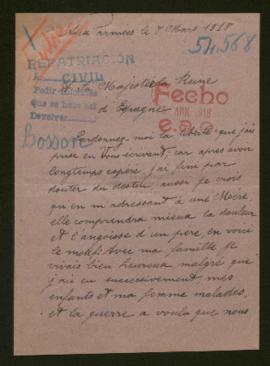 Aux armées le 7 Mars 1918
54.568
REPATRIACIÓN
CIVIL
A Sa Majesté la Reine
Pedir
Que se hace
Devolver
d'Espagne
Fecho
1918
Bosson
Pardonnez moi la liberté que j'ai
prise en Vous écrivant; car après avoir
longtemps espéré, j'ai fini par
douter du destin, aussi je crois
qu'en m'adressant à une Mère
elle comprendra mieux la douleur
et l'angoisse d'un père, en voici
le motif: Avec ma famille je
vivais bien heureux malgré que
j'ai eu successivement, mes
enfants et ma femme malades,
et la guerre a voulu que nous